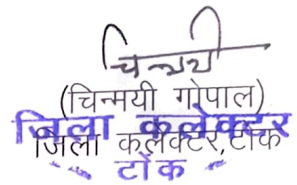 चिन्मयी
(चिन्मयी गोपाल)
जिला कलेक्टर,टोंक
जिला कलेक्टर
टोंक